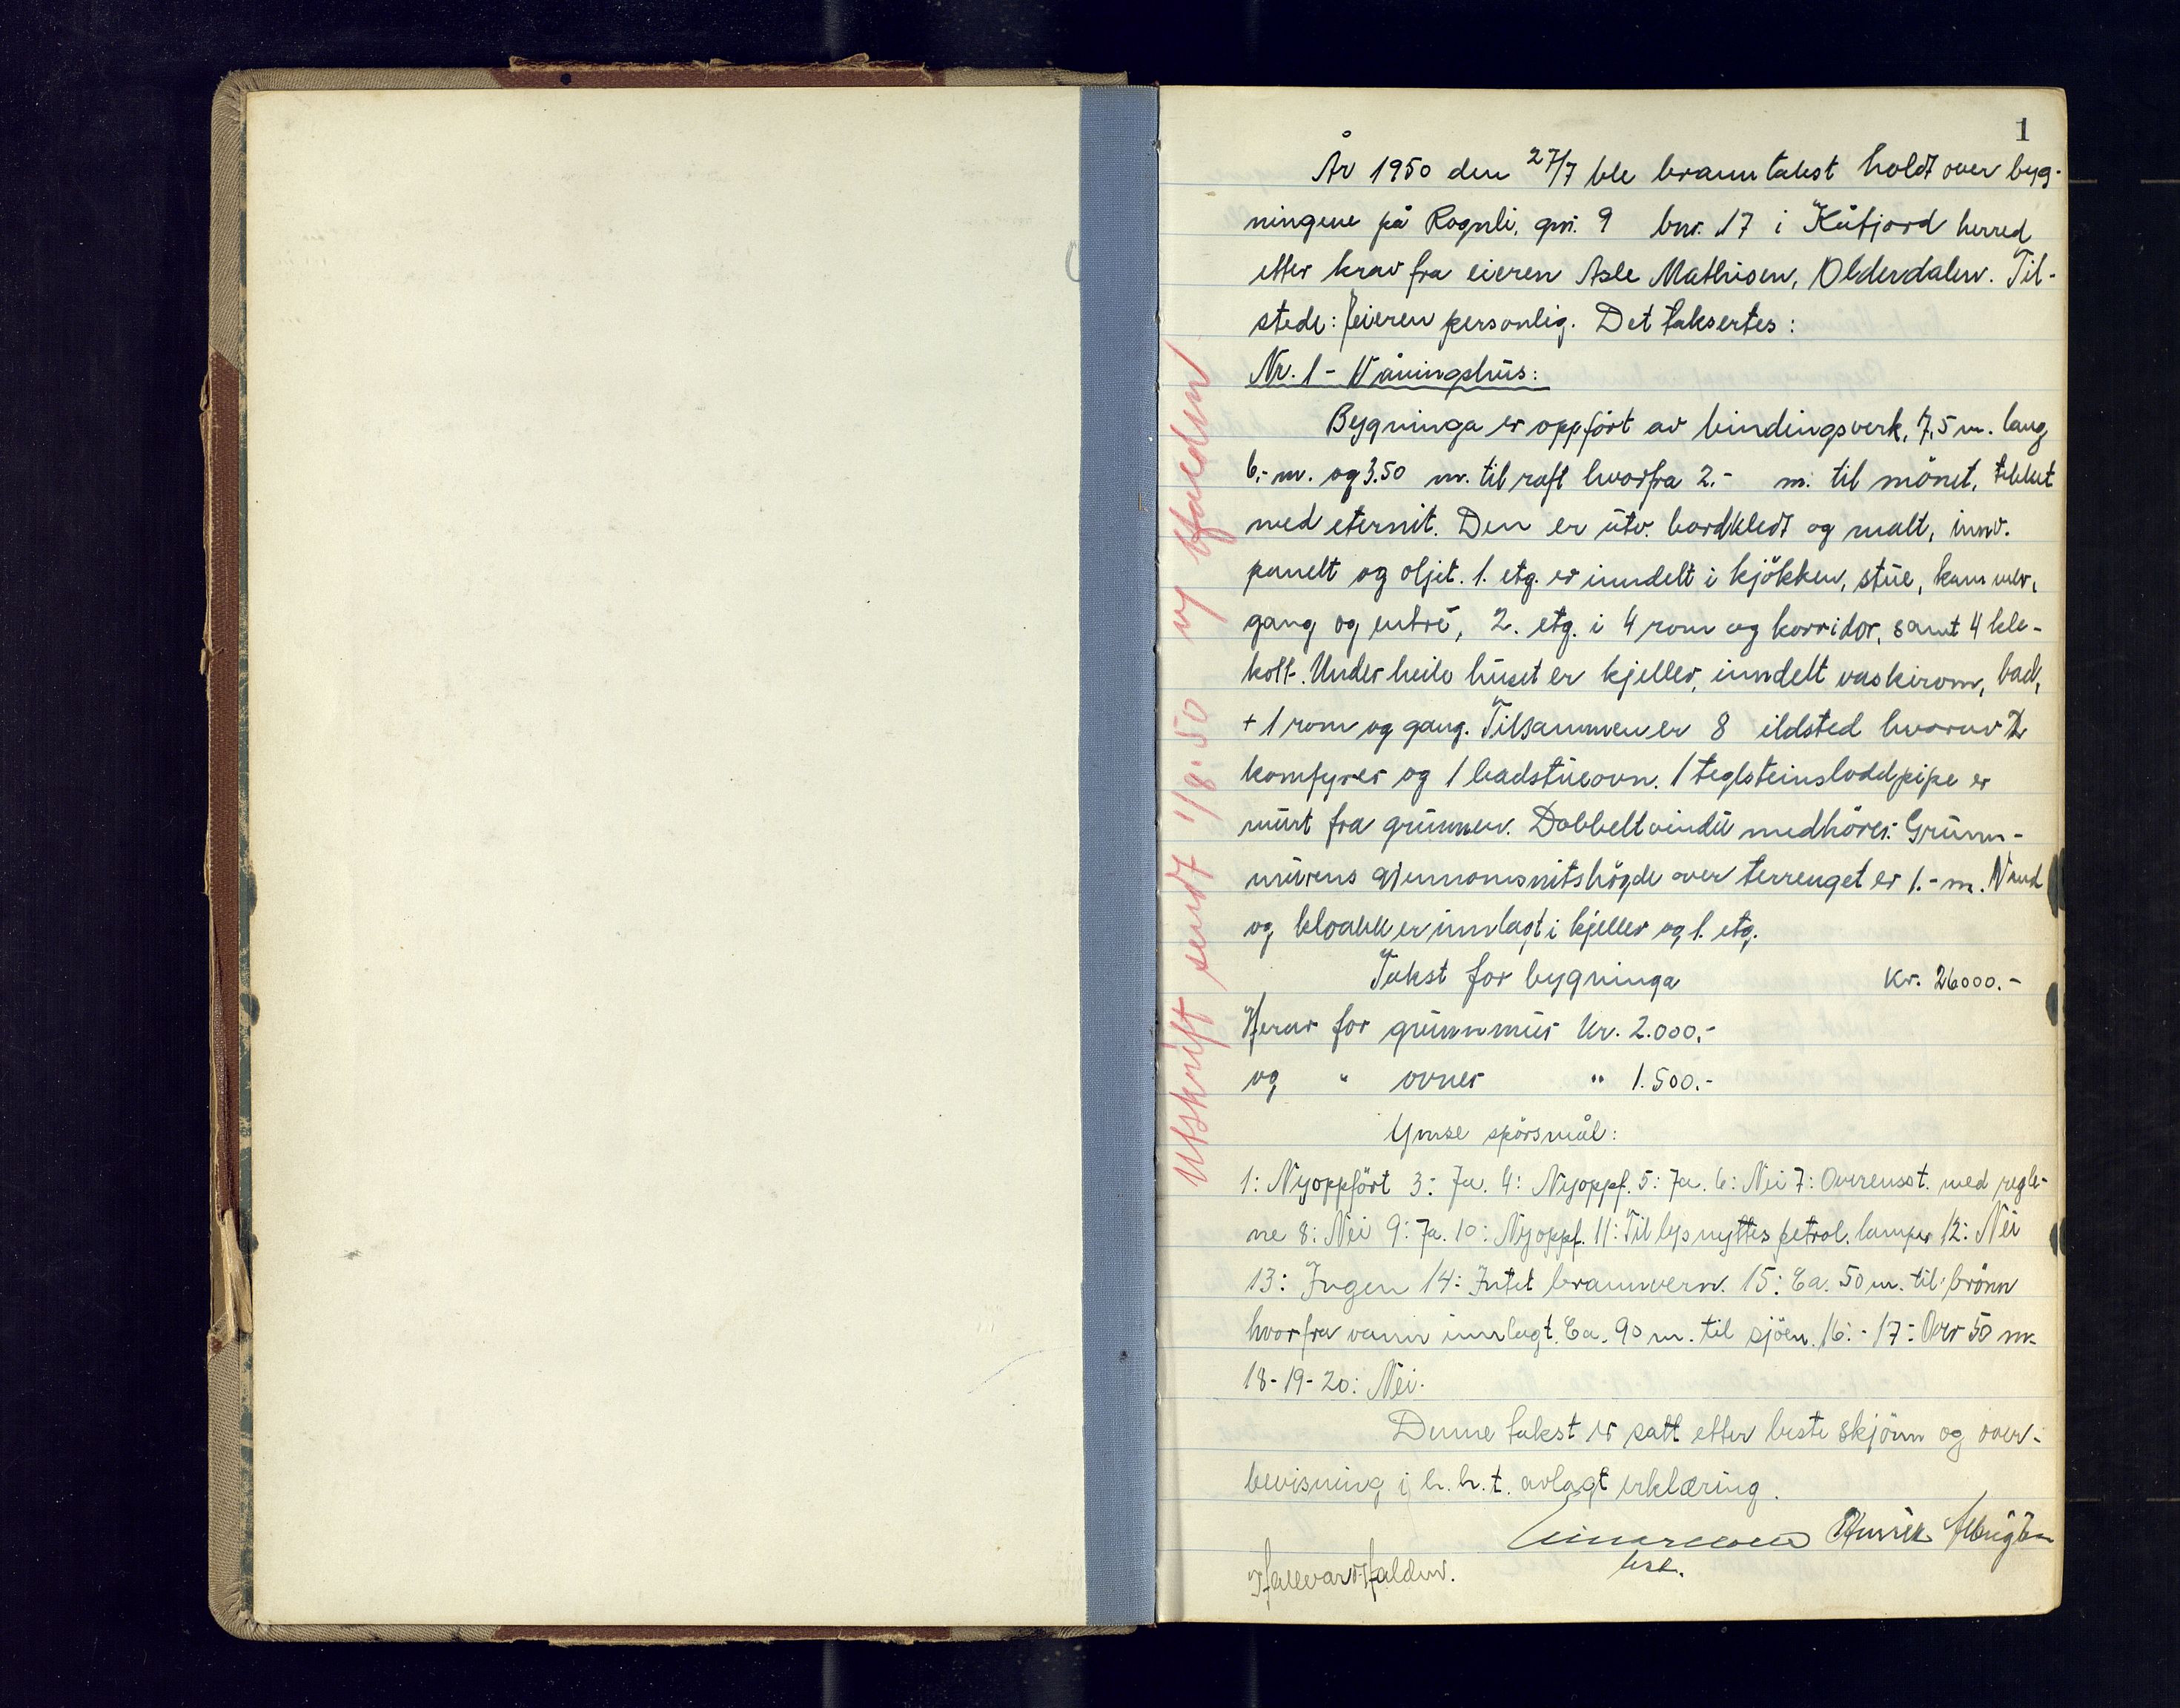 1
År 1950 den 27/7 ble branntakst holdt over byg-
ningene på Rognli, gnr. 9 bnr. 17 i Kåfjord herred
etter krav fra eieren Asle Mathisen, Olderdalen. Til-
stede: Eieren personlig. Det taksertes:
Nr. 1 - Våningshus:
Bygninga er oppfört av bindingsverk, 7,5 m. lang
6.- m. og 3.50 m. til raft hvorfra 2.- m. til mönet, tekket
med eternit. Den er utv. bordkledt og malt, innv.
panelt og oljet. 1. etg. er inndelt i kjökken, stue, kammer,
gang og entré, 2. etg. i 4 rom og korridor, samt 4 kle-
kott. Under heile huset er kjeller, inndelt vaskirom, bad,
+ 1 rom og gang. Tilsammen er 8 ildsted hvorav 2
komfyrer og 1 badstueovn. 1 teglsteinsloddpipe er
murt fra grunnen. Dobbeltvindu medhörer. Grunn-
murens gjennomsnitshögde over terrenget er 1.- m. Vand
og kloakk er innlagt i kjeller og 1. etg.
Takst for bygninga Kr. 26000.-
Herav for grunnmur Kr. 2.000.-
og " ovner " 1.500.-
Ymse spörsmål:
1: Nyoppfört 3: Ja. 4: Nyoppf. 5: Ja. 6: Nei 7: Overensst. med regle-
ne 8: Nei 9: Ja. 10: Nyoppf. 11: Til lys nyttes petrol. lamper 12: Nei
13: Ingen 14: Intet brannvern. 15: Ca. 50 m. til brönn
hvorfra vann innlagt. Ca. 90 m. til sjöen. 16: - 17: Over 50 m.
18-19-20: Nei.
Denne takst er satt etter beste skjönn og over-
bevisning i h. h. t. avlagt erklæring.
Henrik
Hallvard Halden.
Utskrift sendt 1/8-50